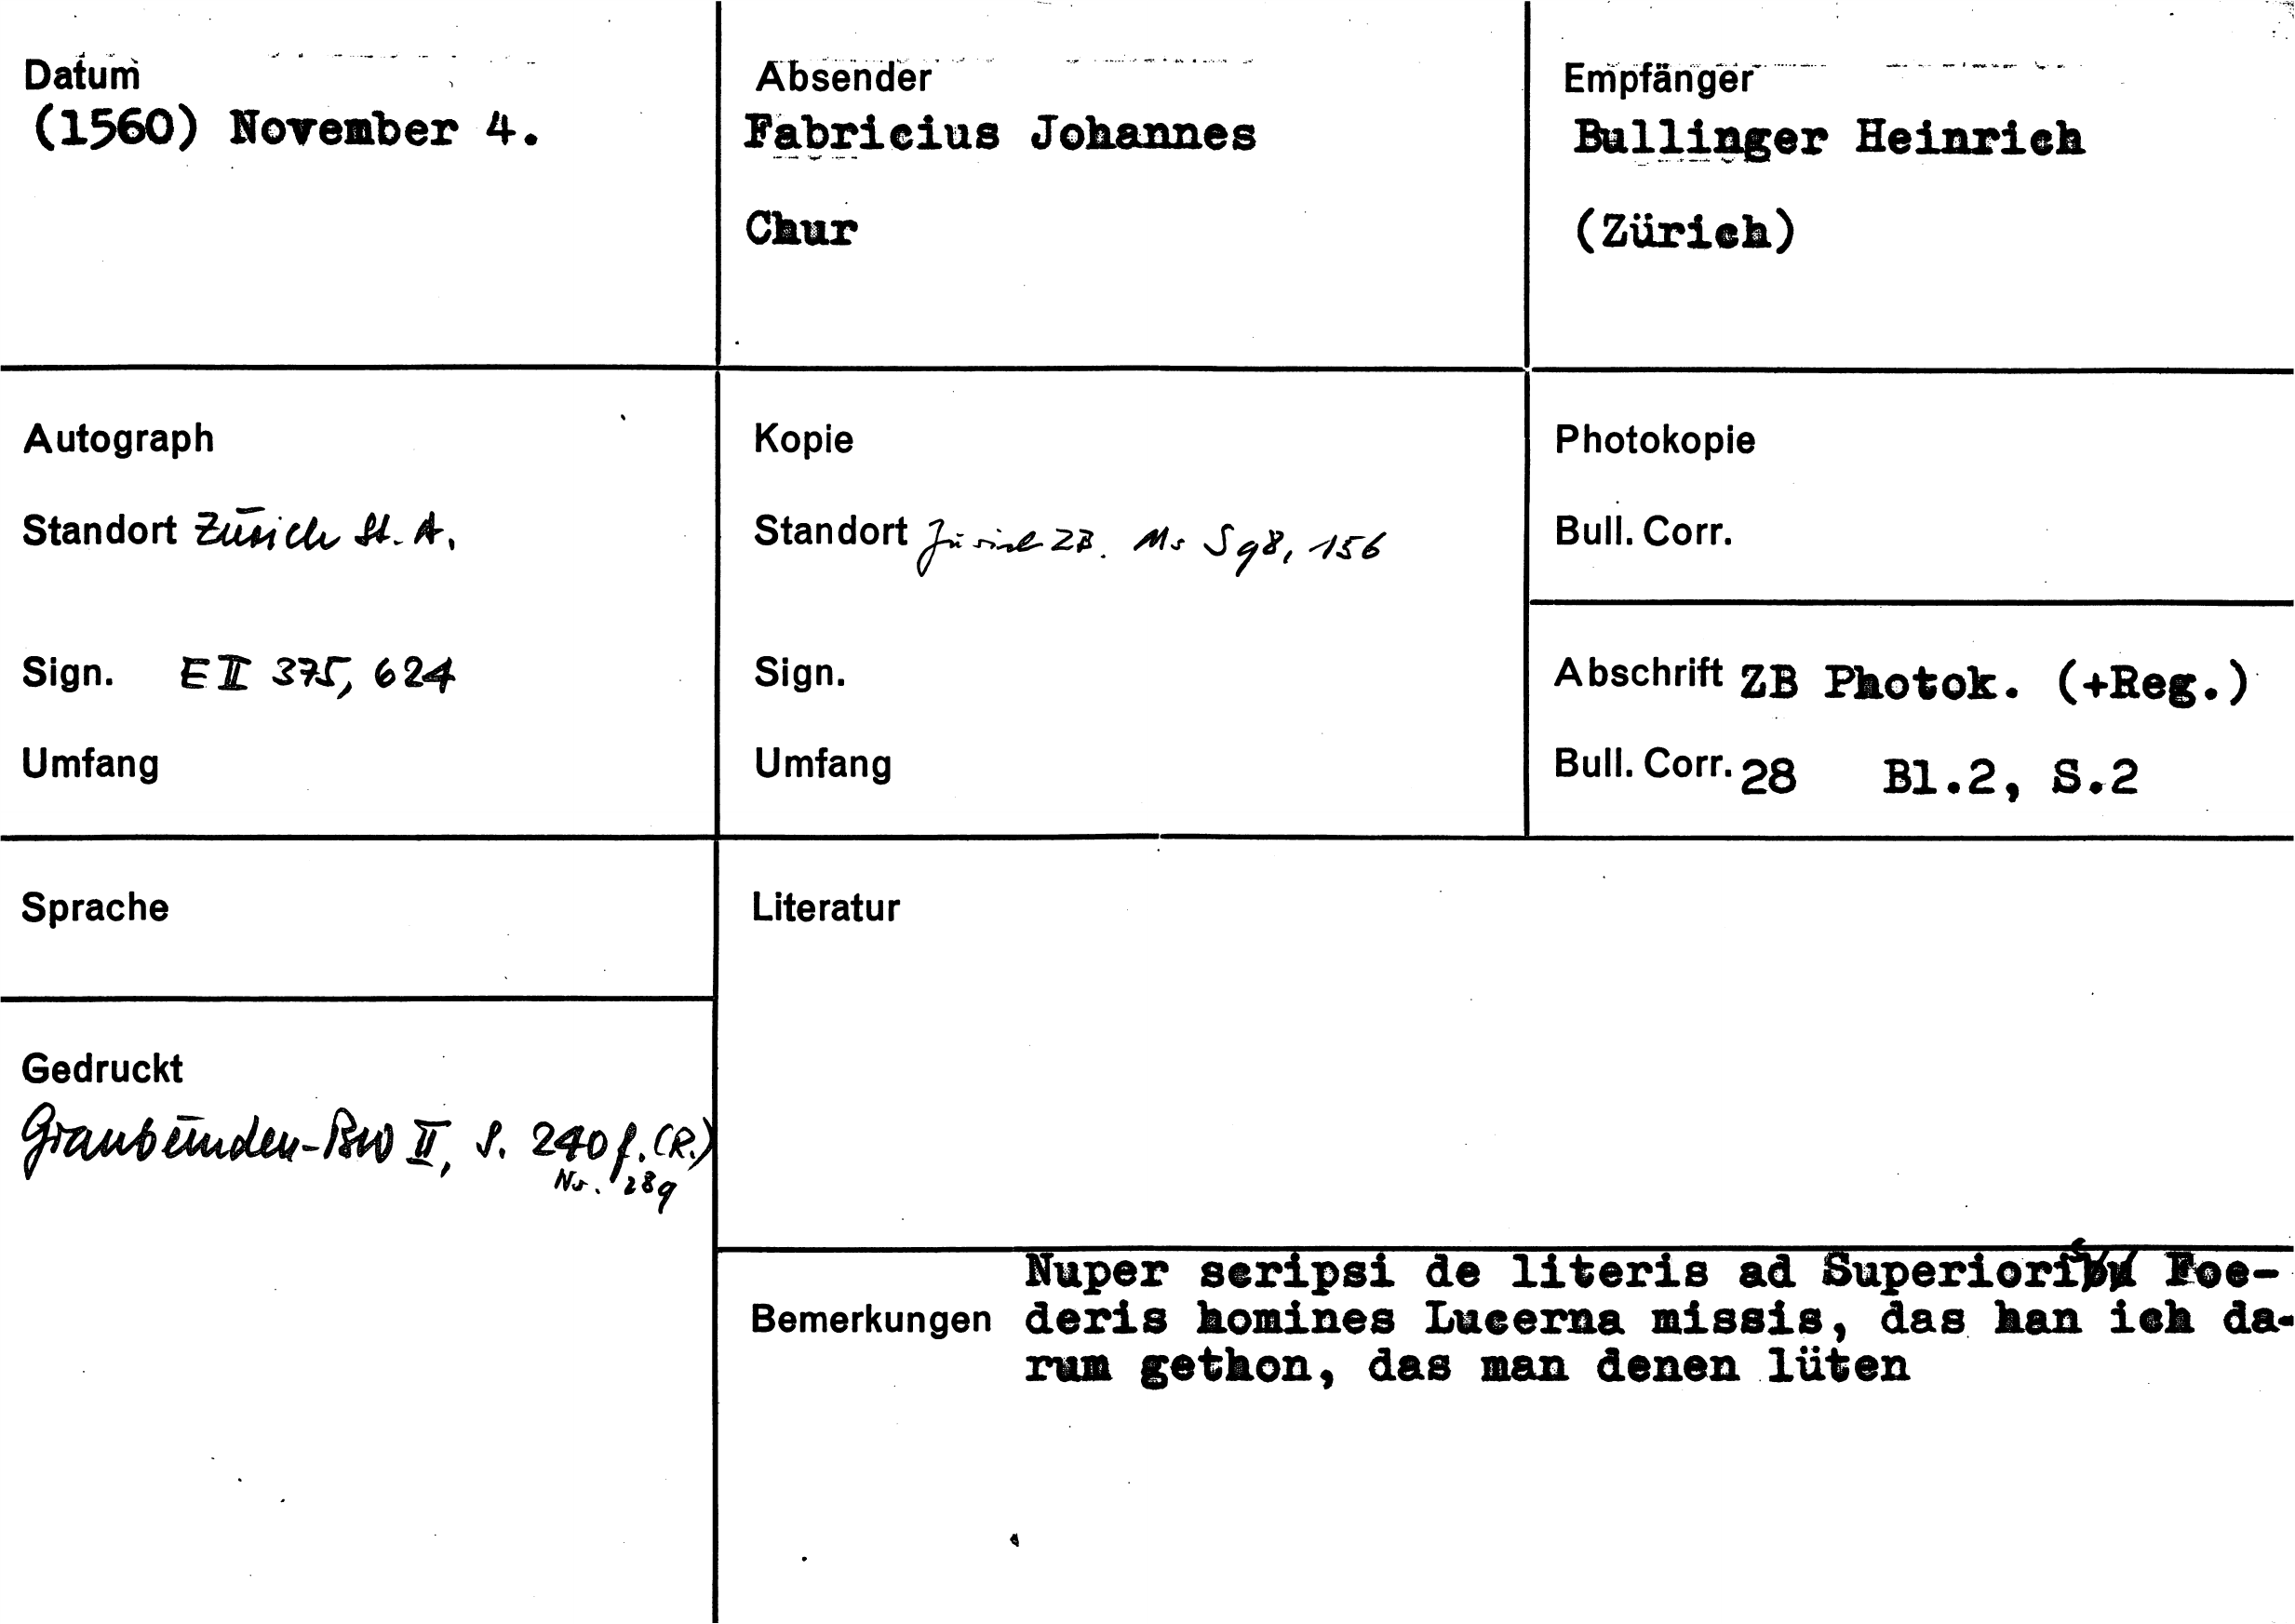 Datum
(1560) November 4.
Absender
Fabricius Johannes
Chur
Empfänger
Bullinger Heinrich
(Zürich)
Autograph
Standort Zürich St. A.
Sign. E II 375, 624
Umfang
Kopie
Standort Zürich ZB. Ms S 98, 156
Sign.
Umfang
Photokopie
Bull. Corr.
Abschrift ZB Photok. (+Reg.)
Bull. Corr. 28 Bl.2, S.2
Sprache
Literatur
Gedruckt
Graubünden-BW II, S. 240 f. (R.)
Nr. 289
Bemerkungen
Nuper scripsi de literis ad Superioris Foe-
deris homines Lucerna missis, das han ich da-
rum gethon, das man denen lüten